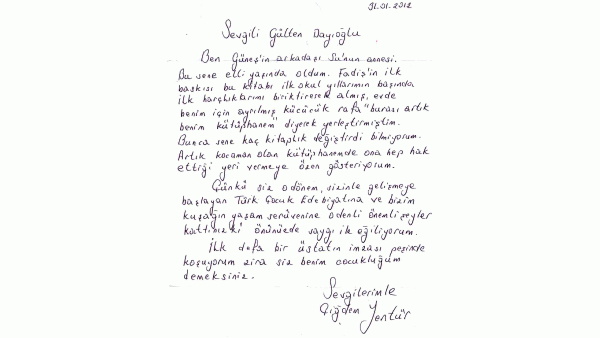 31.01.2012
Sevgili Gülten Dayıoğlu
Ben Güneş'in arkadaşı Su'nun annesi.
Bu sene elli yaşında oldum. Fadiş'in ilk
baskısı bu kitabı ilkokul yıllarımın başında
ilk harçlıklarımı biriktirerek almış, evde
benim için ayrılmış küçücük rafa "burası artık
benim kütüphanem" diyerek yerleştirmiştim.
Bunca sene kaç kitaplık değiştirdi bilmiyorum.
Artık kocaman olan kütüphanemde ona hep hak
ettiği yeri vermeye özen gösteriyorum.
Çünkü siz o dönem, sizinle gelişmeye
başlayan Türk Çocuk Edebiyatına ve bizim
kuşağın yaşam serüvenine o denli önemli şeyler
kattınız ki önünüzde saygı ile eğiliyorum.
İlk defa bir üstatın imzası peşinde
koşuyorum zira siz benim çocukluğum
demeksiniz.
Sevgilerimle
Çiğdem Yentür